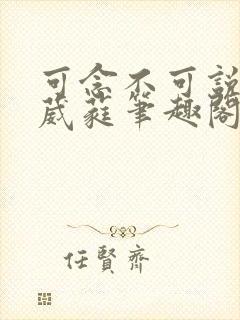 可念不可說
葳蕤筆趣閣
任賢齊